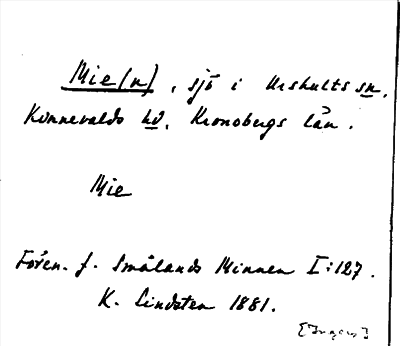 Mie(n), sjö i Urshults sn,
Konnevalds hd, Kronobergs län.
Mie
Fören. f. Smålands Minnen I:127.
K. Lindsten 1881.
[Ingers]